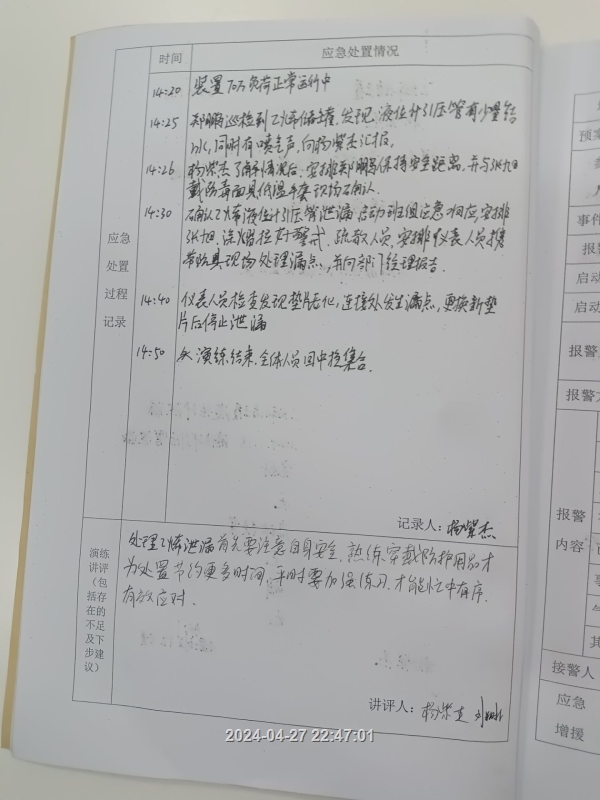 时间 应急处置情况
14:20 装置70%负荷正常运行中
14:25 郑鹏巡检到乙烯储罐,发现液位计引压管有少量结
冰,同时有喷气声,向杨荣杰汇报.
14:26 杨荣杰了解情况后,安排郑鹏保持安全距离,并与张旭
戴防毒面具低温手套现场确认.
14:30 确认乙烯液位计引压管泄漏,启动班组应急响应,安排
张旭、涂 拉好警戒,疏散人员,安排仪表人员携
带防具现场处理漏点,并向部门经理报告.
14:40 仪表人员检查发现垫片老化,连接处发生漏点,更换新垫
片后停止泄漏
14:50 演练结束,全体人员回中控集合.
应急
处置
过程
记录
记录人:杨荣杰
演练
讲评
(包
括存
在的
不足
及下
步建
议)
处理乙烯泄漏首先要注意自身安全,熟练穿戴防护用品才
为处置节约更多时间,平时要加强练习,才能忙中有序.
有效应对.
讲评人:杨荣杰
预案
事件
报警
启动
启动
报警人
报警方
报警
内容
接警人
应急
增援
2024-04-27 22:47:01